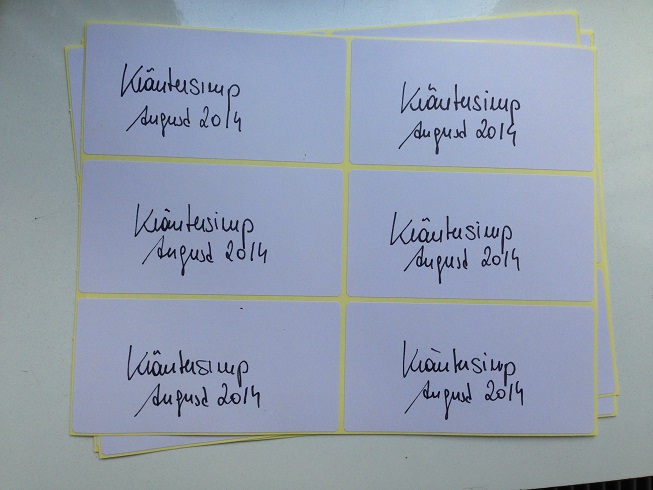 Kräutersirup
August 2014
Kräutersirup
August 2014
Kräutersirup
August 2014
Kräutersirup
August 2014
Kräutersirup
August 2014
Kräutersirup
August 2014